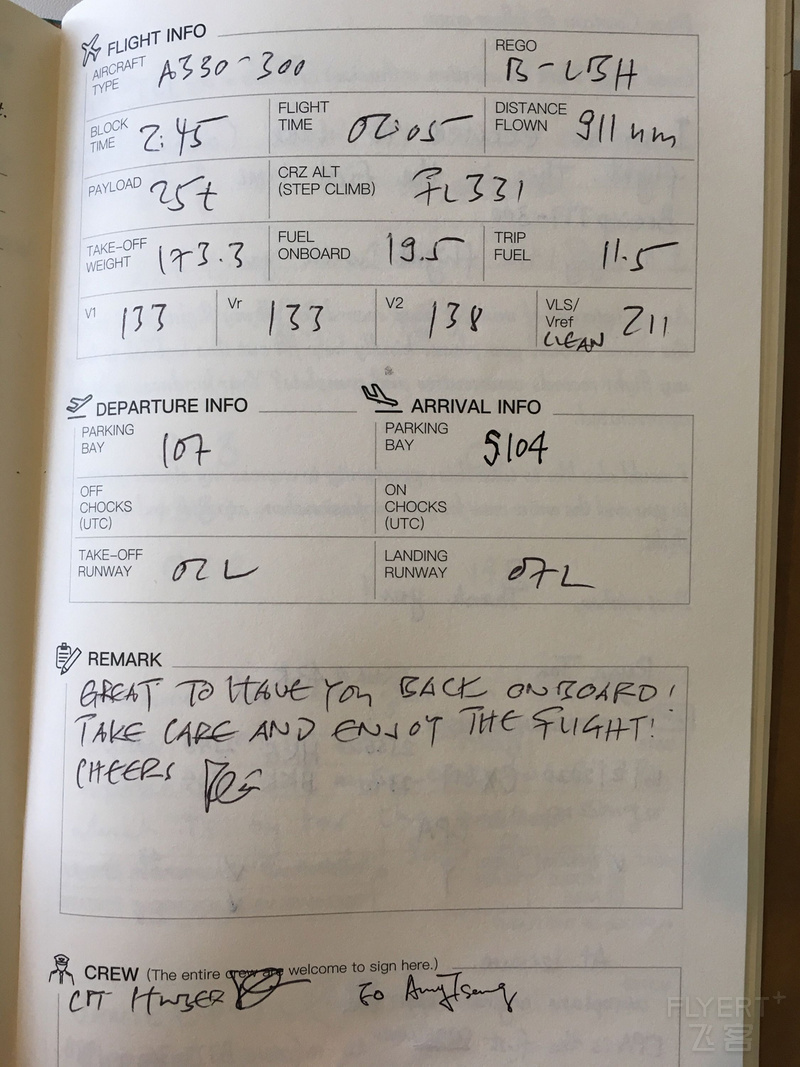 FLIGHT INFO
AIRCRAFT TYPE A330-300
REGO B-LBH
BLOCK TIME 2:45
FLIGHT TIME 02:05
DISTANCE FLOWN 911 nm
PAYLOAD 25t
CRZ ALT (STEP CLIMB) FL331
TAKE-OFF WEIGHT 173.3
FUEL ONBOARD 19.5
TRIP FUEL 11.5
V1 133
Vr 133
V2 138
VLS/ Vref CLEAN 211
DEPARTURE INFO
PARKING BAY 107
OFF CHOCKS (UTC)
TAKE-OFF RUNWAY 02L
ARRIVAL INFO
PARKING BAY S104
ON CHOCKS (UTC)
LANDING RUNWAY 07L
REMARK
GREAT TO HAVE YOU BACK ONBOARD!
TAKE CARE AND ENJOY THE FLIGHT!
CHEERS
CREW (The entire crew are welcome to sign here.)
CPT FO Amy Tseng
FLYERT+
飞客